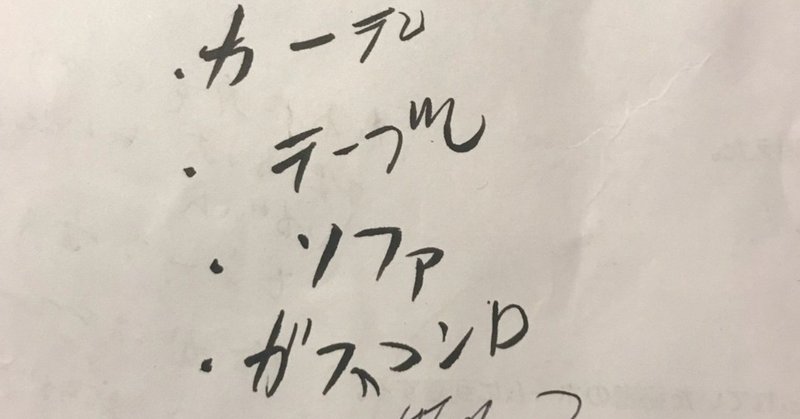 ・カーテン
・テーブル
・ソファ
・ガスコンロ